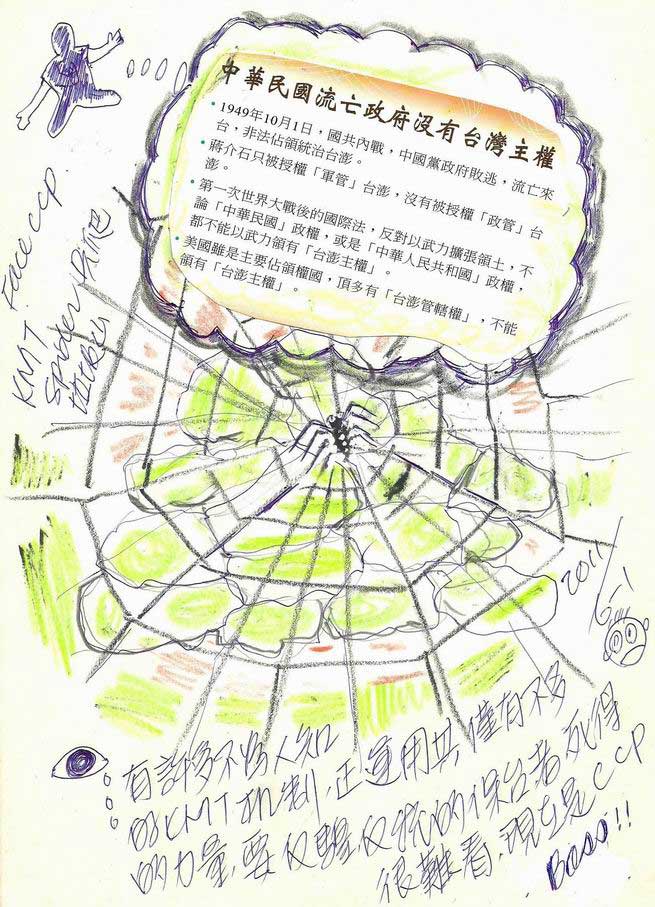 中華民國流亡政府沒有台灣主權
• 1949年10月1日，國共內戰，中國黨政府敗逃，流亡來
台，非法佔領統治台澎。
• 蔣介石只被授權「軍管」台澎，沒有被授權「政管」台
澎。
• 第一次世界大戰後的國際法，反對以武力擴張領土，不
論「中華民國」政權，或是「中華人民共和國」政權，
都不能以武力領有「台澎主權」。
• 美國雖是主要佔領權國，頂多有「台澎管轄權」，不能
領有「台澎主權」。
Face CCP
KMT
Spider
2011/
6-1
有許多不為人知
的KMT機制，正運用其僅有不多
的力量，要反醒反抗的保台者死得
很難看，現在是CCP
Boss!!